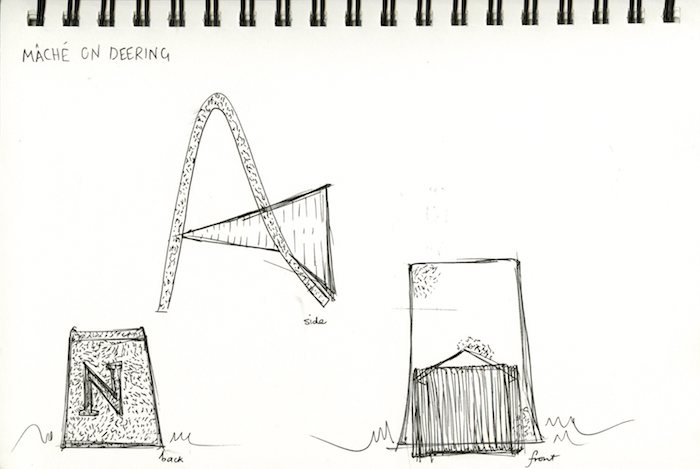 MÂCHÉ ON DEERING
side
N
back
front